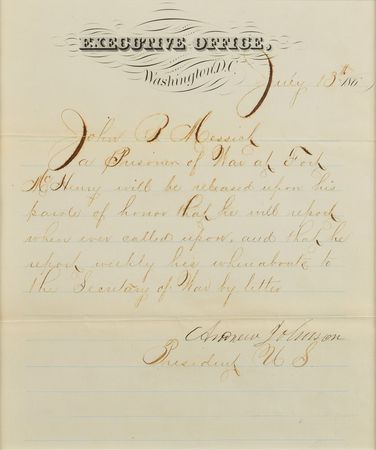 EXECUTIVE OFFICE,
Washington, D.C.
July 13th 186
John B Messick
a Prisoner of War at Fort
McHenry will be released upon his
parole of honor that he will report
when ever called upon, and that he
report weekly his whereabouts to
the Secretary of War by letter
Andrew Johnson
President U S.